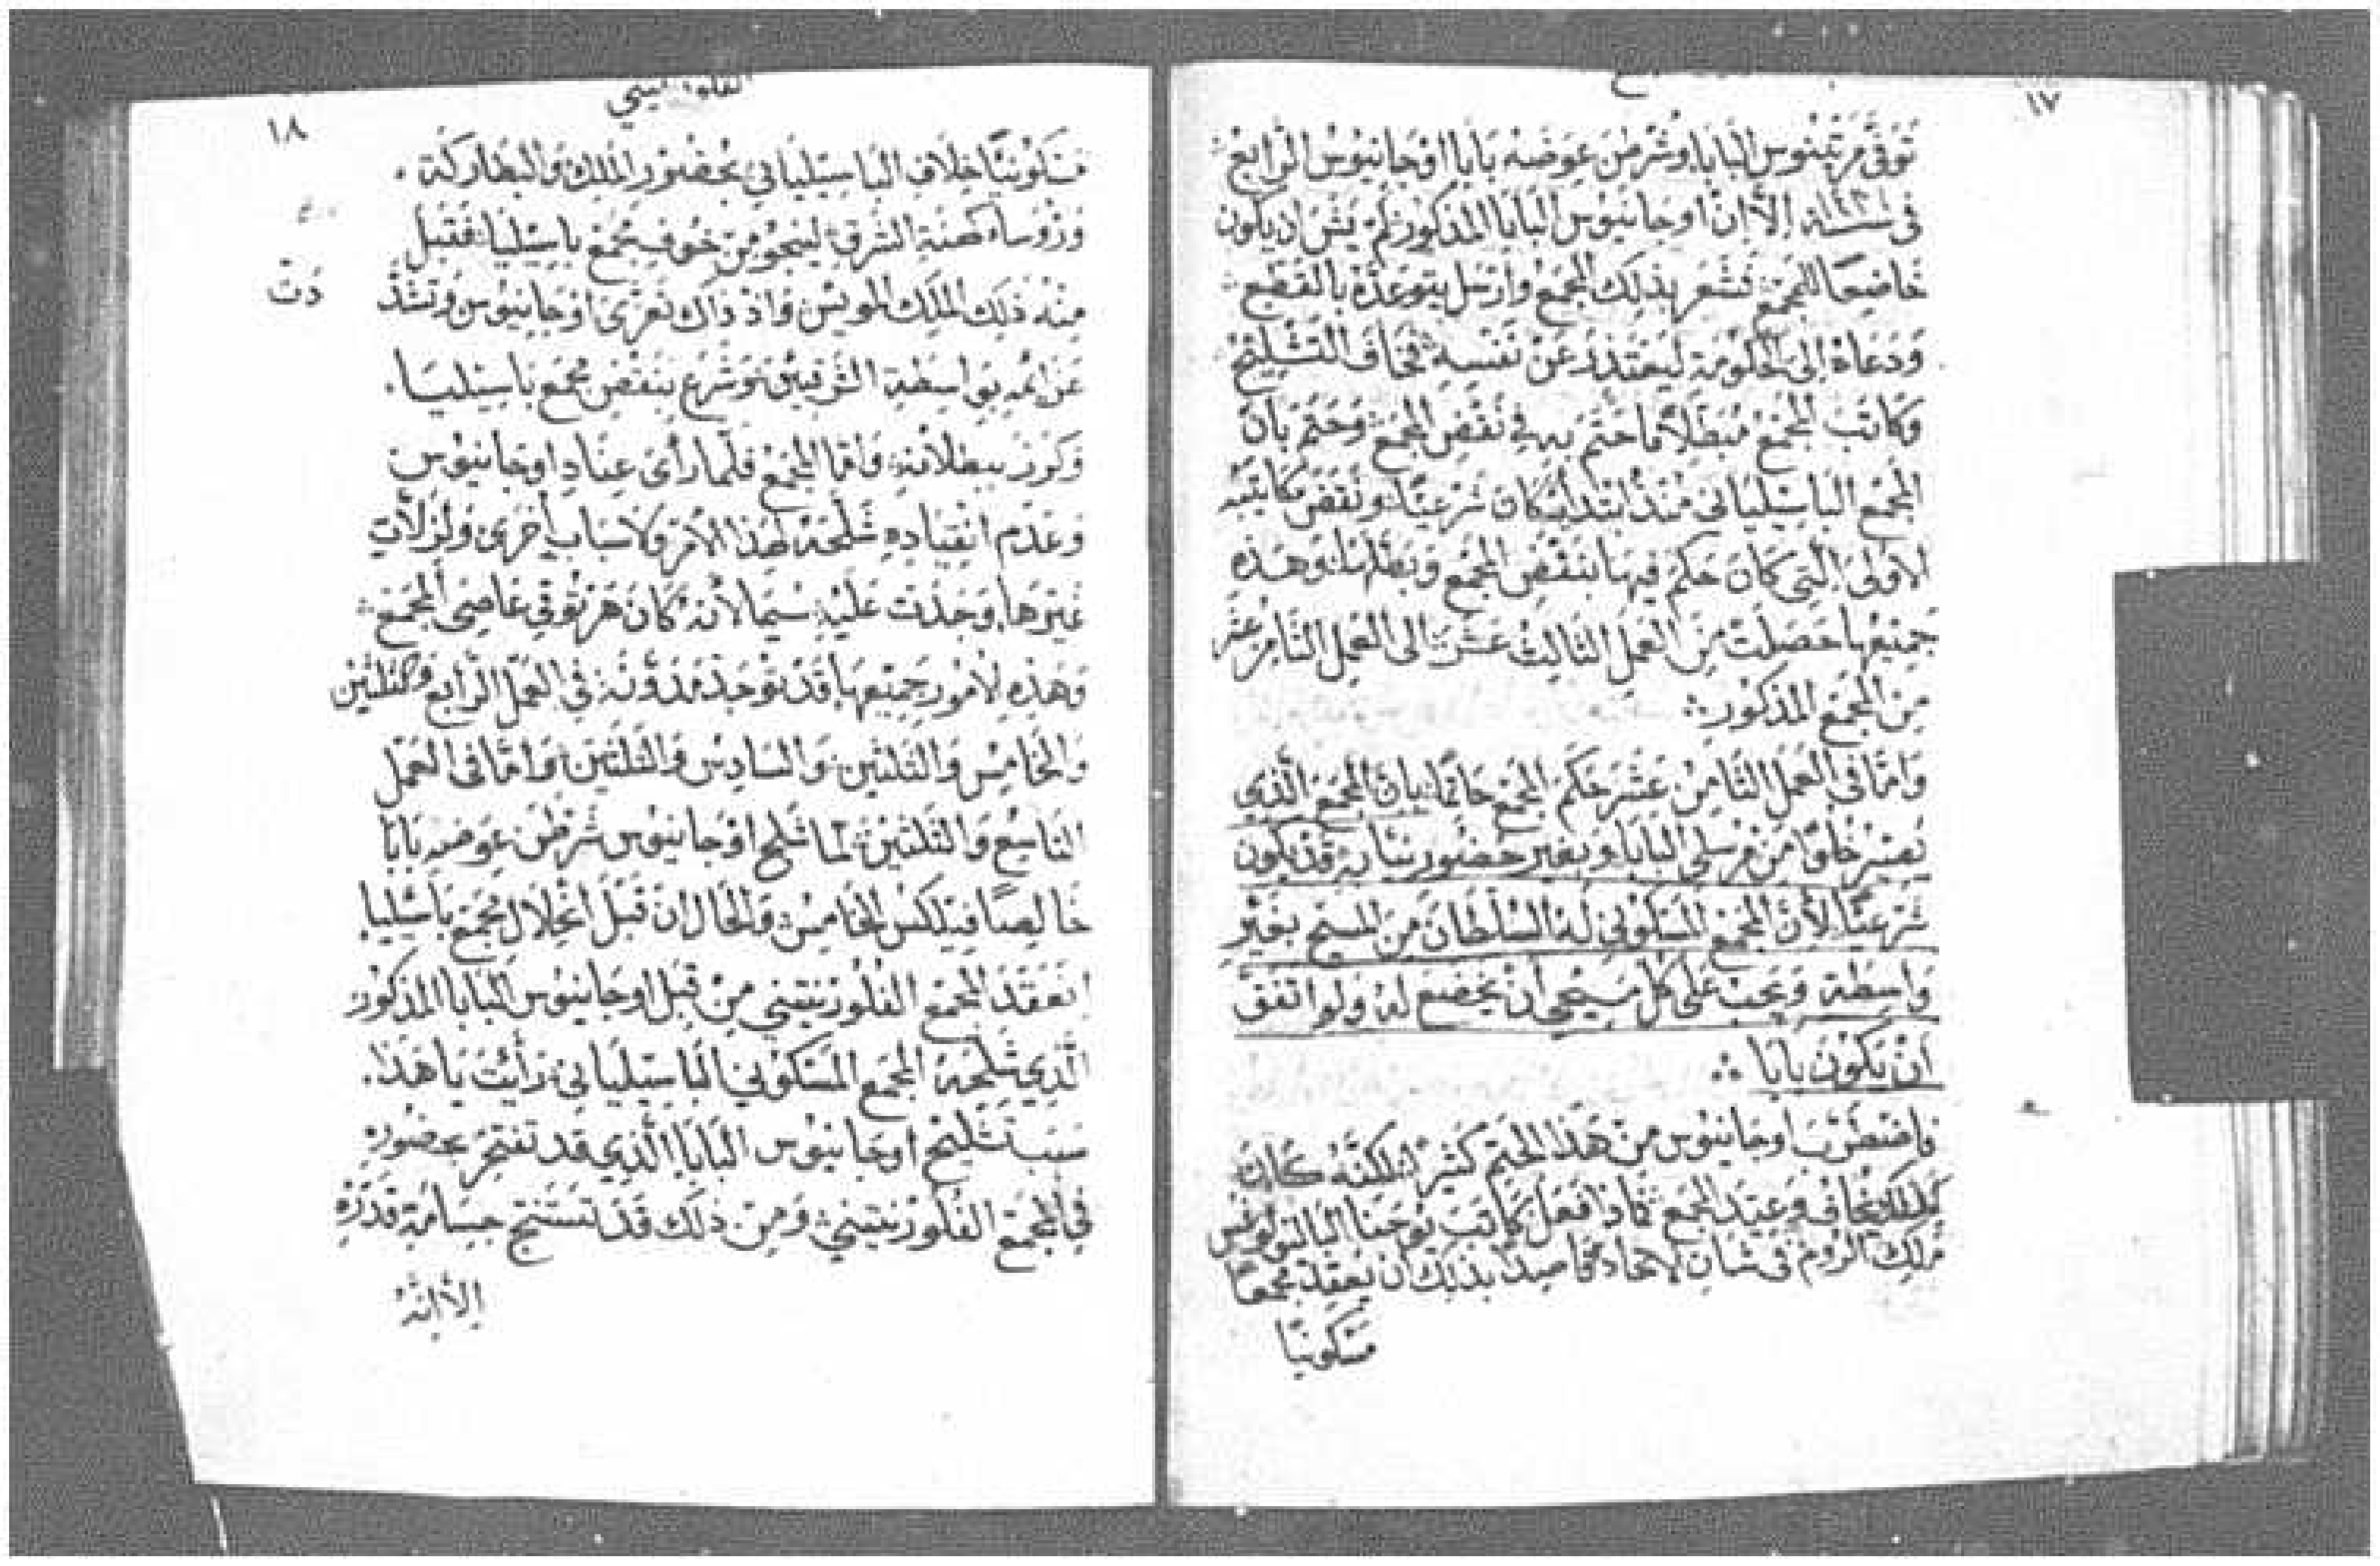 ١٧
تَوَفَّى مَرتِينوس البَابَا وشُرطِن عِوَضَهُ بَابَا اوجَانيوُس الرابعْ
في سنة إلّا إنّ اوجَانيوُس البَابَا المذكور لَم يَشَا ان يكون
خَاضِعًا للمجمَعْ فشَعَر بذلِكَ المجمَعْ وأرْسَل يتوعَدُهْ بالقطعْ
وَدَعَاهُ إلى الحكومَةِ ليَعتذِرَ عَنْ نَفسِهِ فخَافَ التشليحْ
وَكاتَبَ المجمَعْ مُبَطِّلاً مَا حَتَم بهِ في نَقضِ المجمَع وَحَتَم بانّ
المجمَع البَاسِيليَاني مُنذُ ابتدائِهِ كانَ شَرعيّا ونَقَضَ مكاتيبه
الاولىَ التي كَانَ حَكَمَ فيهَا بنَقضِ المجمَع وَبَطَّلهَا وَهَذِهِ
جَميعهَا حَصَلَتْ مِنَ العَمَل الثالِث عَشَر الى العَمَل الثامِن عَشَر
مِنَ المجمَع المذكوُر
وَامَّا في العَمَل الثامِن عَشَر حَكَم المجمَع حَاتمًا بانّ المجمَع الَّذي
يَصيْر خُلوًا مِن مُرسَلي البَابَا وَبغَيْر حضوُر نيّابهِ قَدْ يكون
شَرعيًّا لأنّ المجمَع المَسْكوُني لهُ السُلطَانَ مِنَ المسيح بغَيْر
وَاسِطَة وَيَجبْ عَلى كل مَسِيحي أنْ يَخضَع لهُ وَلو اتفق
أنْ يَكوُن بَابَا
فاضطرَبَ اوجَانيوُس مِنْ هَذا الحَتم كَثيرًا لكِنّهُ كَانَ
يَخافُ وَعيدَ المجمَع فمَاذا فعَل كَاتَبَ يوُحَنا البَاليولوغس
مَلِك الروُم في شَان الاتحاد قاصِدًا بذلِك أنْ يَعقِدَ مجمعًا
مَسْكوُنيًا
١٨
مَسْكوُنيًّا خِلاف البَاسِيليَاني بحُضوُر المَلِك وَالبَطاركَة .
وَرُؤسَاء كهَنةِ الشَرق لينجُو مِنْ خَوْفِ مجمَع بَاسِيليَا فقَبَل
مِنهُ ذلِك المَلِك الموُيْس وَاذ ذَاك تعَزّى اوجَانيوُس وَتشَدَّ
دَتْ
عَزائِمه بوَاسِطة الشَرقيينْ وَشَرَع بنَقض مجمَع بَاسِيليَا .
وَكَرَز ببطلانهِ وَامّا المجمَع فلمّا رأىَ عِنادِ اوجَانيوُس
وَعَدَم انقيادِهِ شَلَّحَهُ لهذا الأمر وَلاسبَاب أخرىَ وَلِزلاّتٍ
غيَرهَا وُجدَت عَليْهِ سِيّمَا لأنهُ كَانَ هَرتوُقي عَاصِى المجمَع
وَهَذِهِ الأموُر جَميعهَا قَد توُجَدْ مُدَوّنَة في العَمَل الرابع وَالثلثيْن
وَالخَامِس وَالثلثيْن وَالسَادِس وَالثلثيْن وَامّا في العَمَل
التاسِع وَالثلثيْن لمّا تشَلح اوجَانيوُس شُرطِن عِوَضهِ بَابَا
خَالِصًا فيلِكس الخَامِس وَالحَال إنّ قَبْل انحِلال مجمَع بَاسِيليا
انعَقَد المجمَع الفلوُرنتيني مِنْ قِبَل اوجَانيوُس البَابَا المذكوُر
الَّذي شَلحَهُ المجمَع المَسْكوُني البَاسِيليَاني رَأيْتَ يَا هَذا .
سَبَبَ تشليْح اوجَانيوُس البَابَا الَّذي قد تَفتخِرَ بحضوُرهِ
في المجمَع الفلوُرنتيني وَمِنْ ذلِكَ قَد تَستَنتِج جسَامَة قَدْرهِ
إلّا إنَّهُ